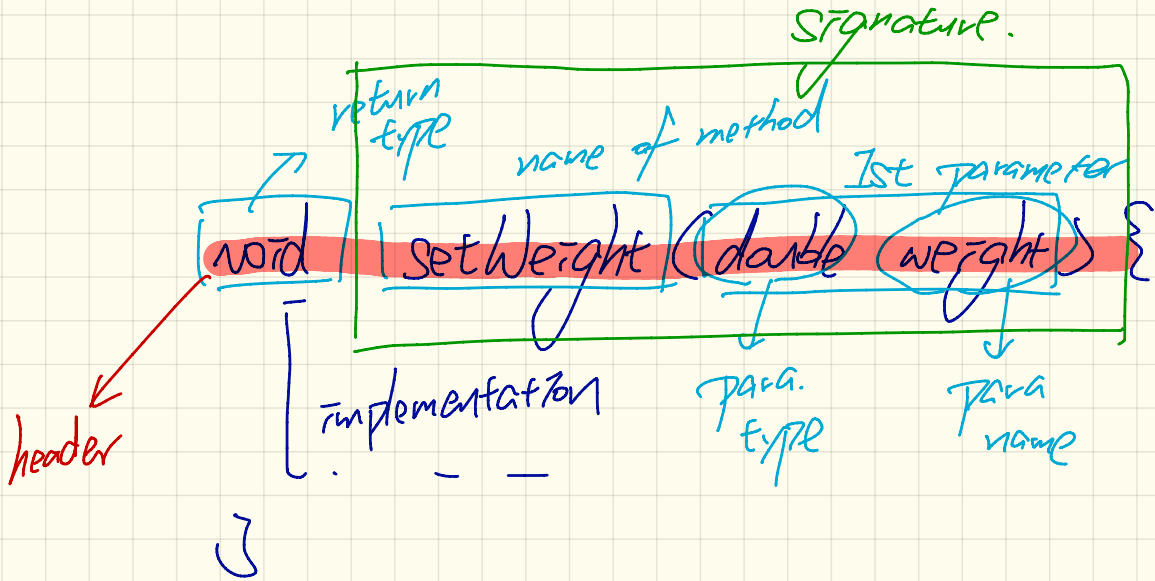 signature.
return
type
name of method
1st parameter
void setWeight (double weight) {
implementation
para.
type
para
name
header
}